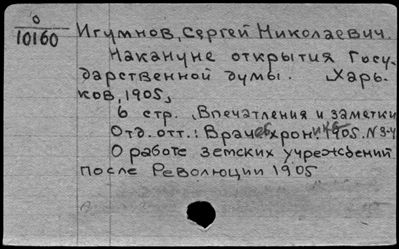 0
10160
Игумнов, Сергей Николаевич.
Накануне открытия Госу-
дарственной думы. Харь-
ков, 1905,
6 стр. Впечатления и заметки
Отд. отт.: Врачеб. хроника 1905. N 3-4
О работе земских учреждений
после Революции 1905